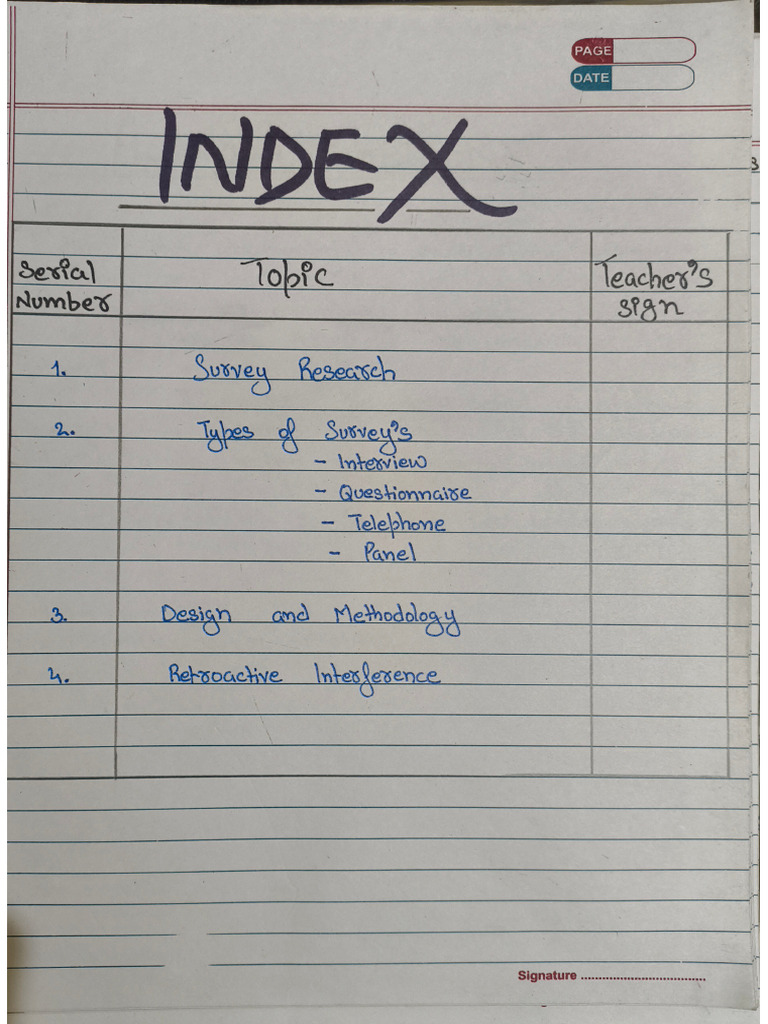 PAGE
DATE
INDEX
Serial Number
Topic
Teacher's sign
1. Survey Research
2. Types of Survey's
- Interview
- Questionnaire
- Telephone
- Panel
3. Design and Methodology
4. Retroactive Interference
Signature ..................................